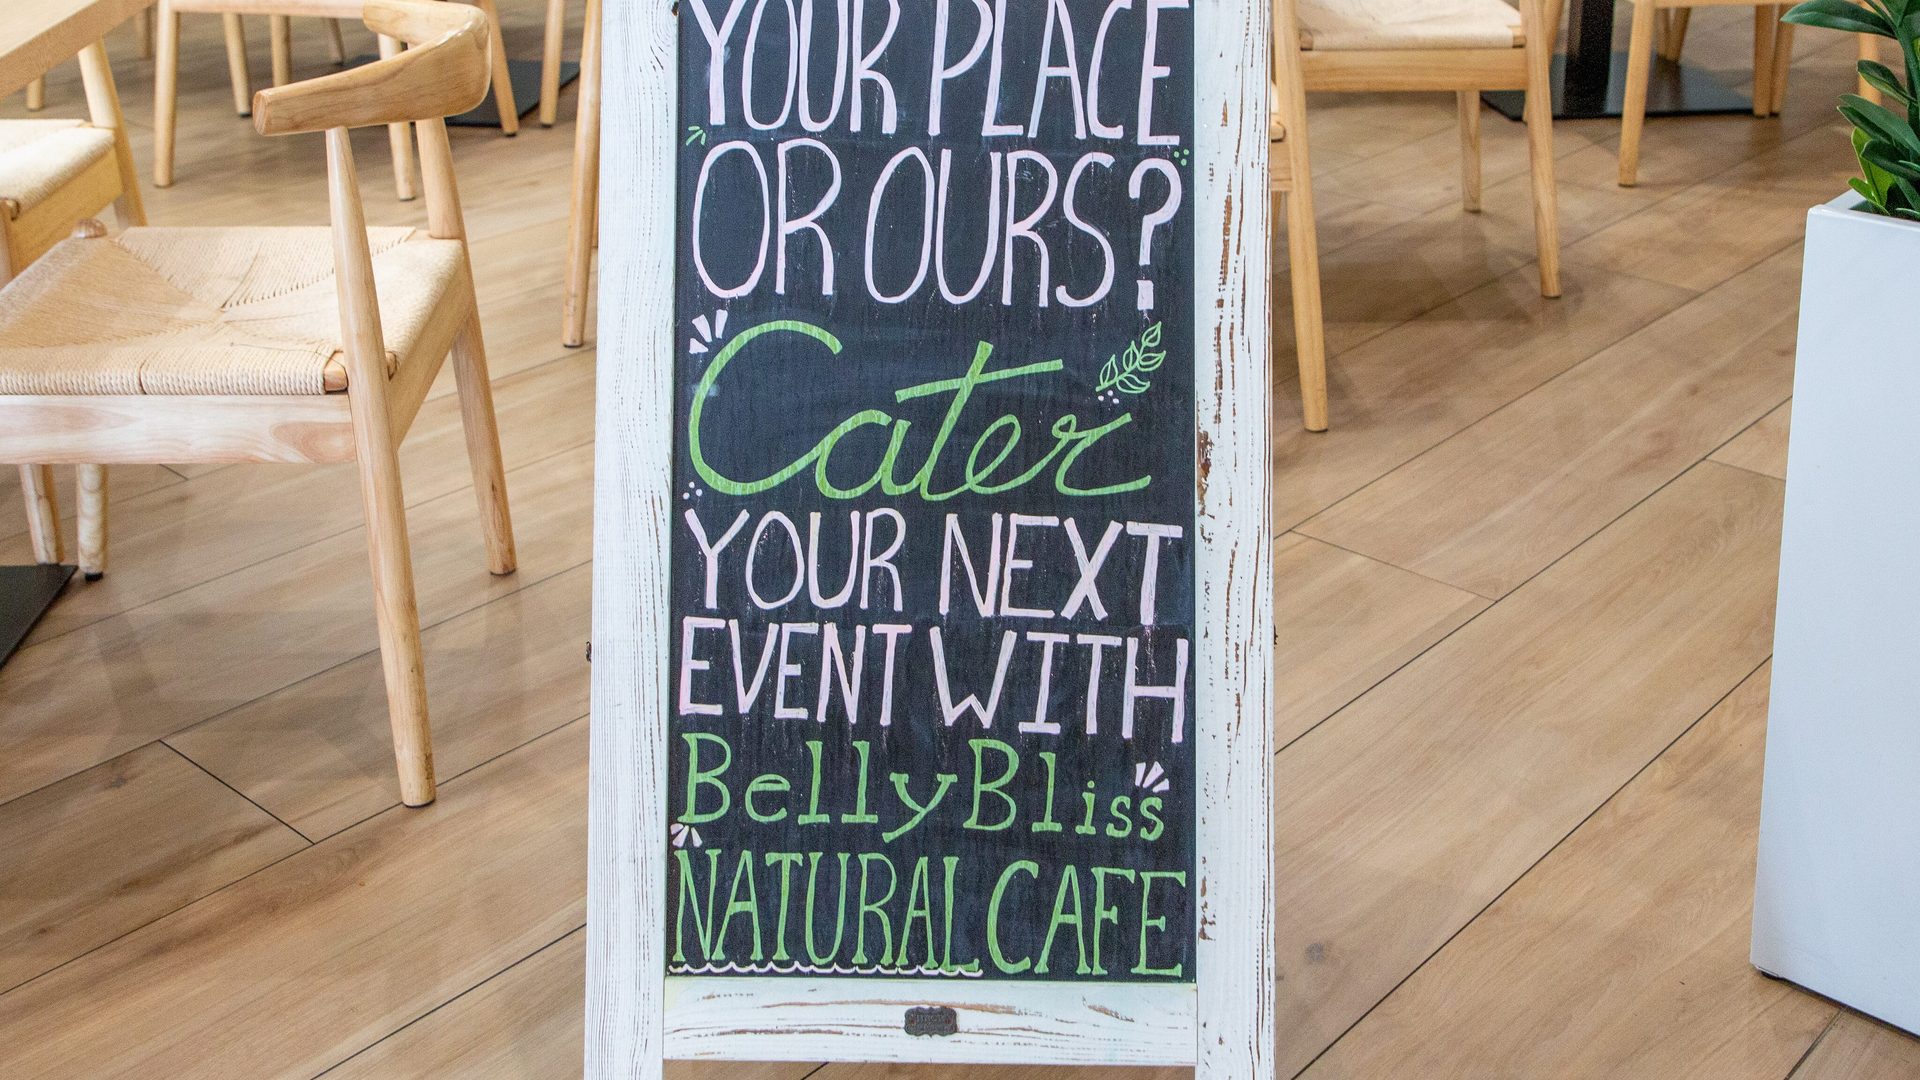 YOUR PLACE
OR OURS?
Cater
YOUR NEXT
EVENT WITH
Belly Bliss
NATURAL CAFE